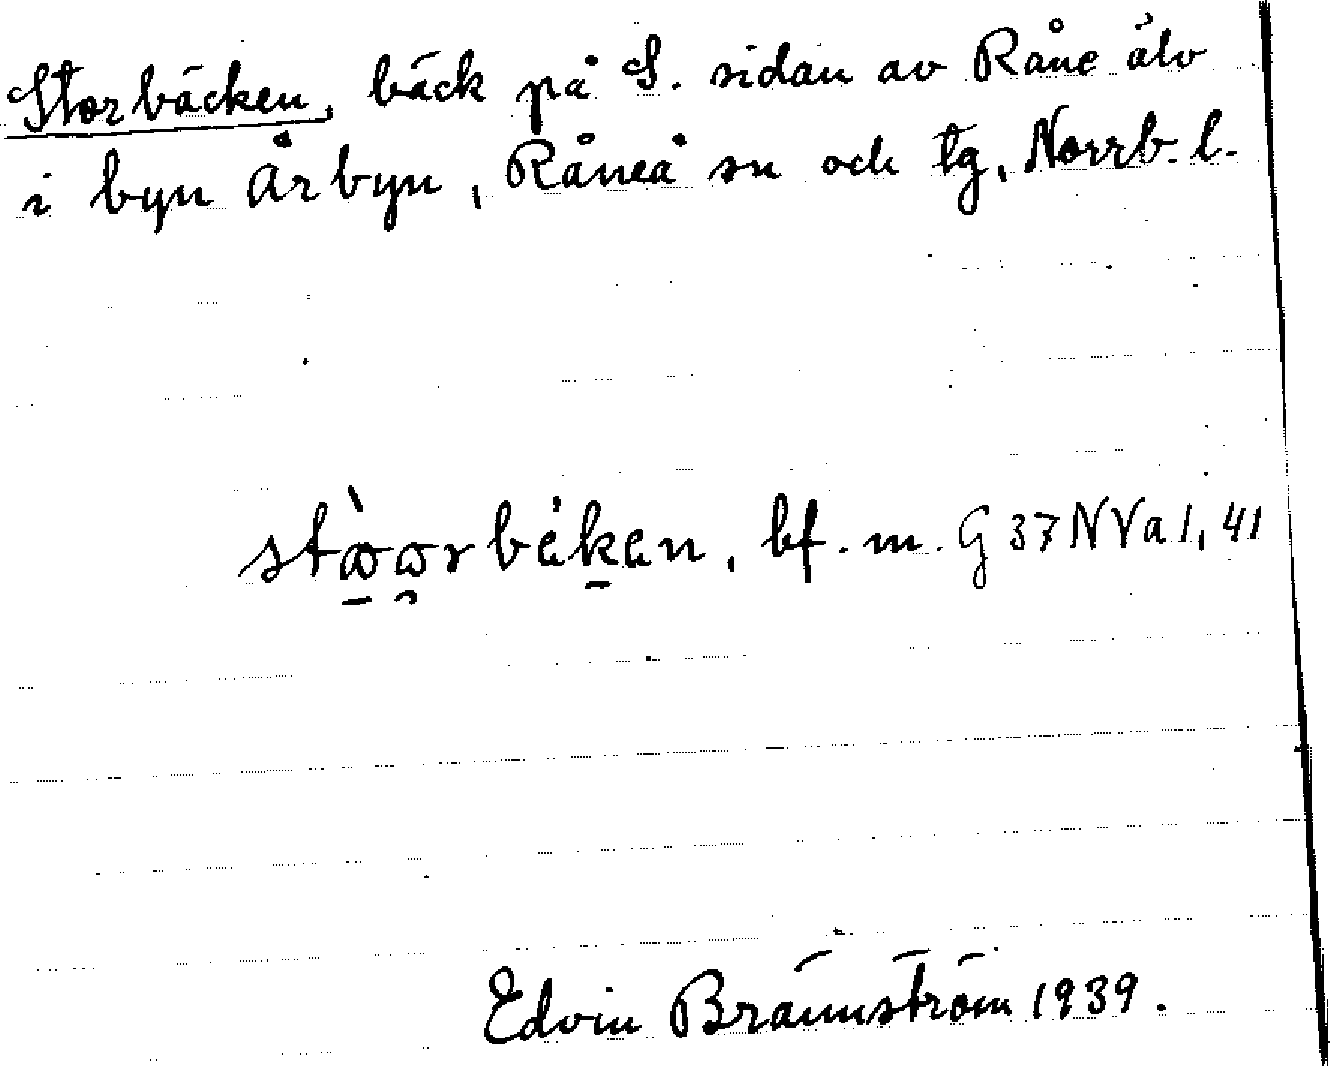 Storbäcken, bäck på S. sidan av Råne älv
i byn Årbyn, Råneå sn och tg, Norrb. l.
bf. m. G 37 N Va 1, 41
Edvin Brännström 1939.